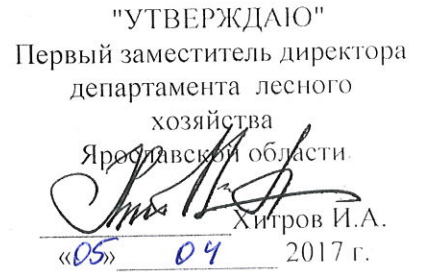 "УТВЕРЖДАЮ"
Первый заместитель директора
департамента лесного
хозяйства
Ярославской области
Хитров И.А.
«05» 04 2017 г.